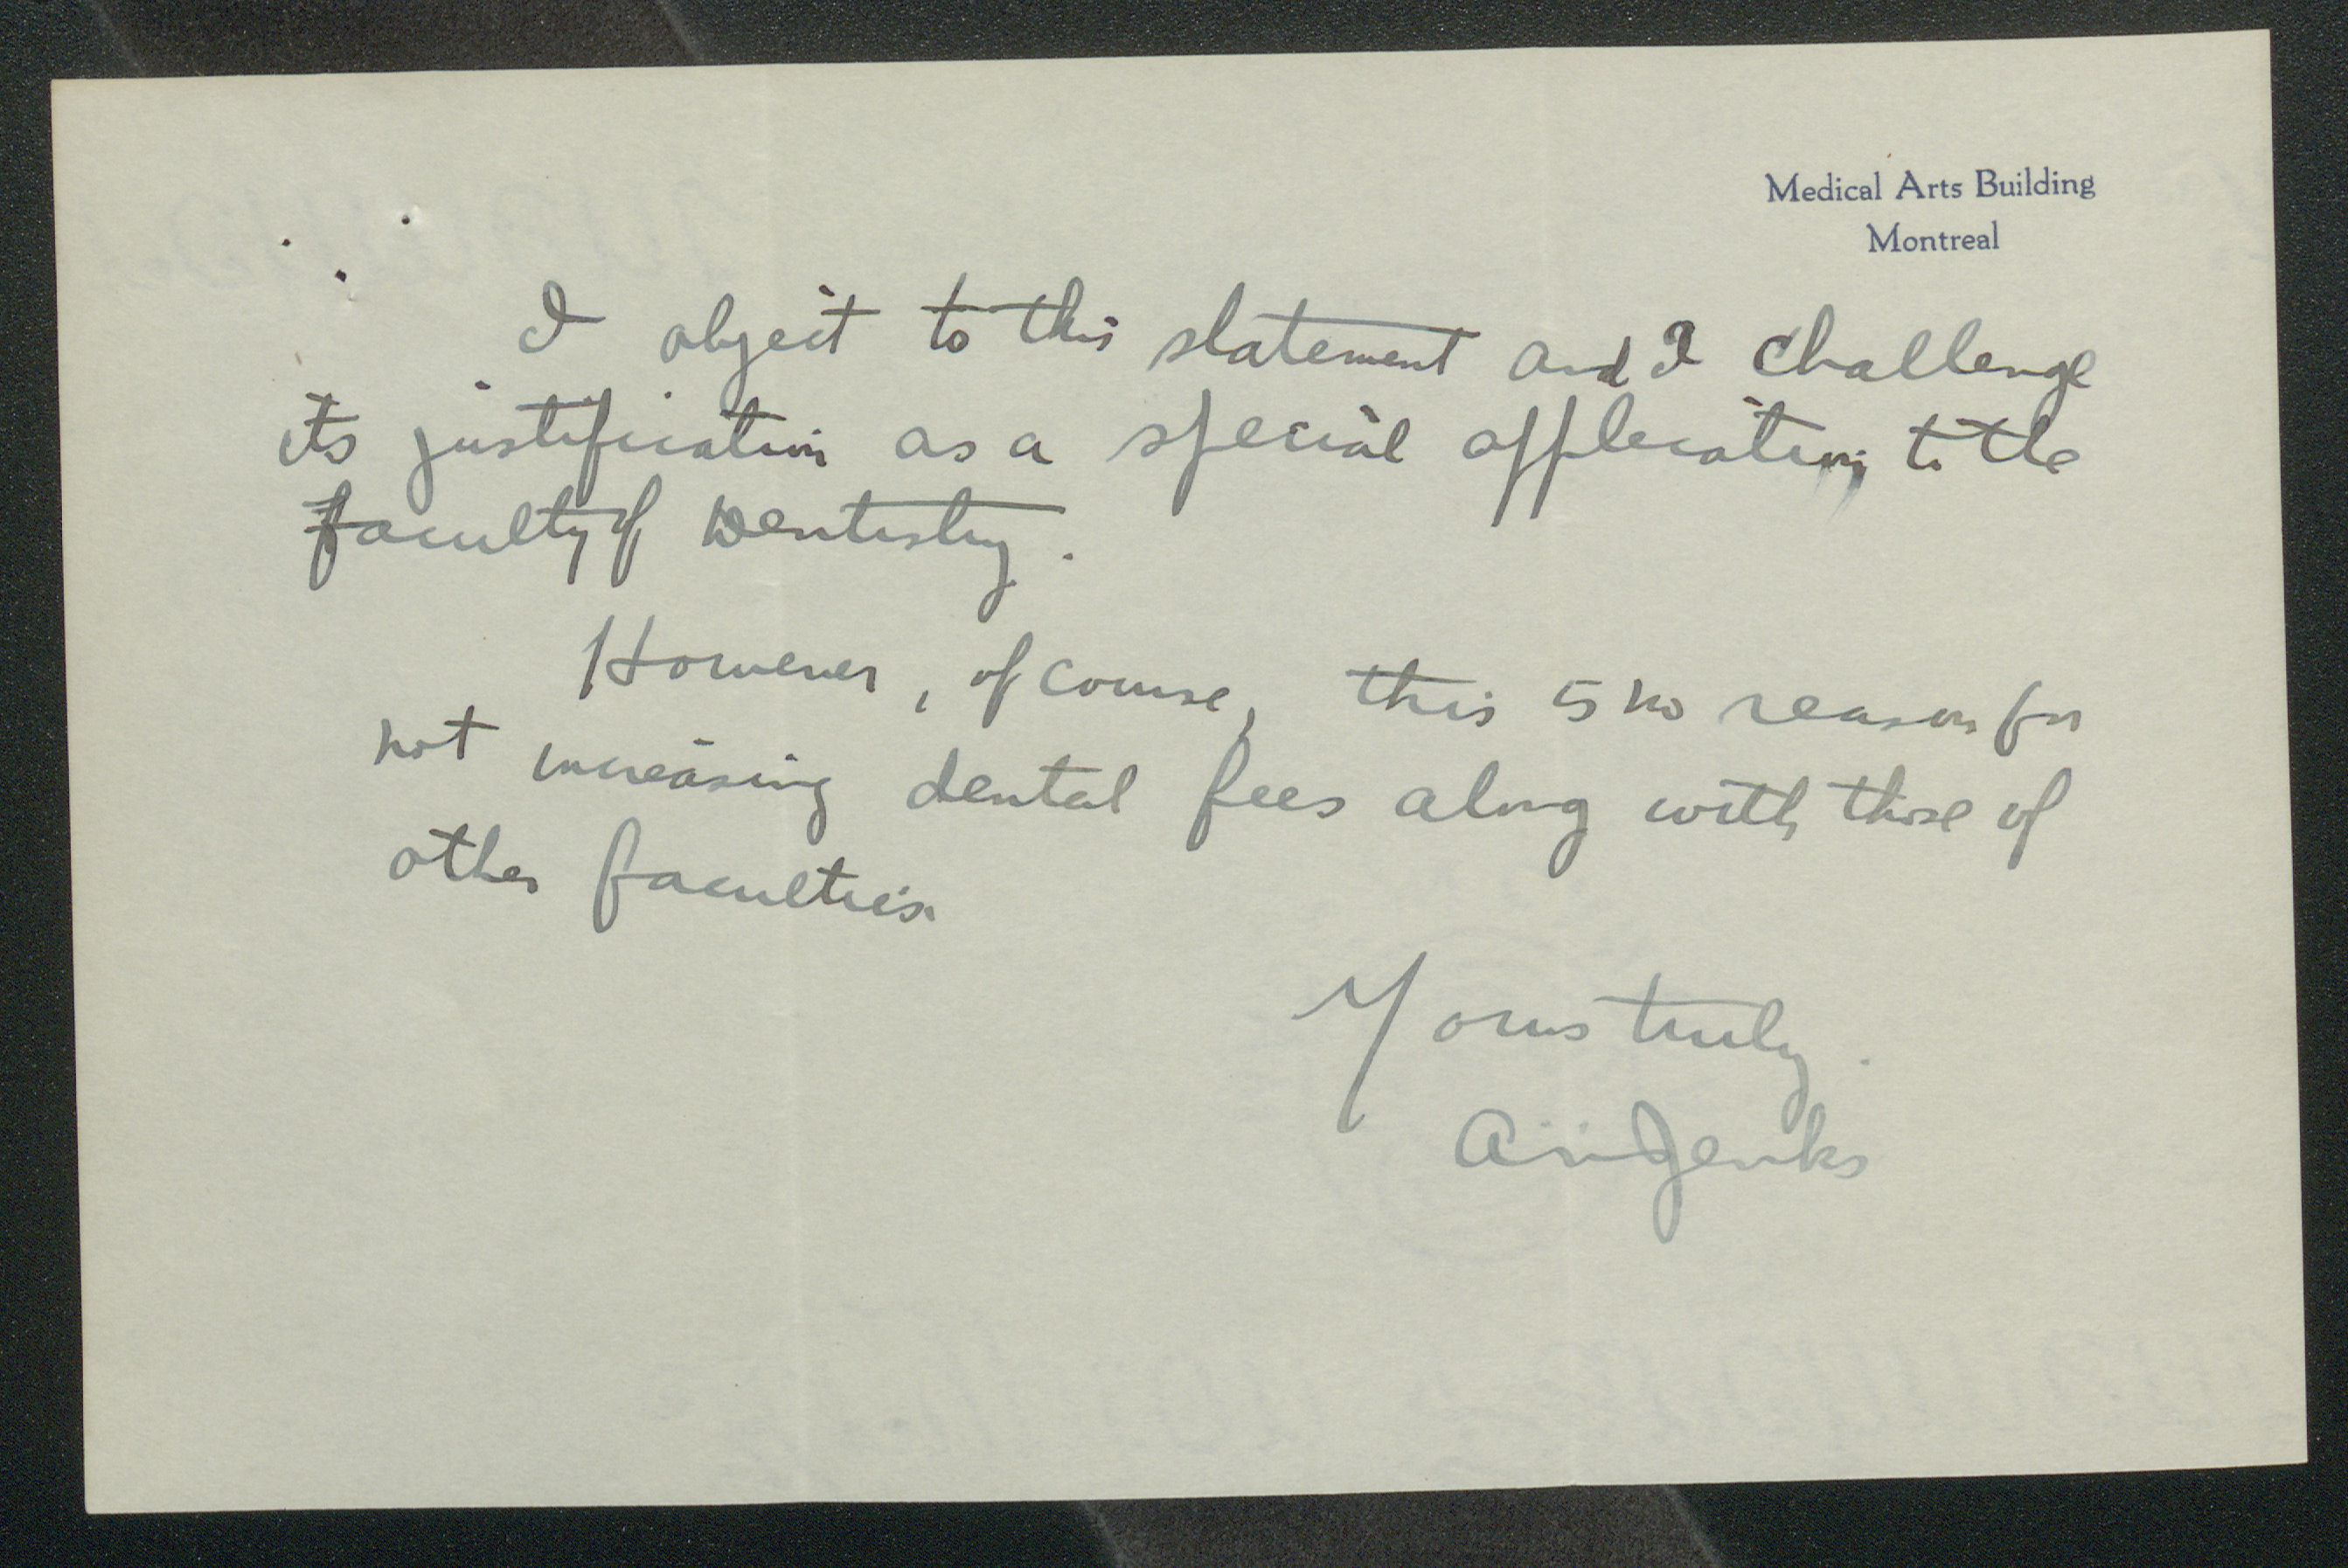 Medical Arts Building
Montreal
I object to this statement and I challenge
its justification as a special application to the
Faculty of Dentistry.
However, of course, this is no reason for
not increasing dental fees along with those of
other faculties.
Yours truly.
Jenks